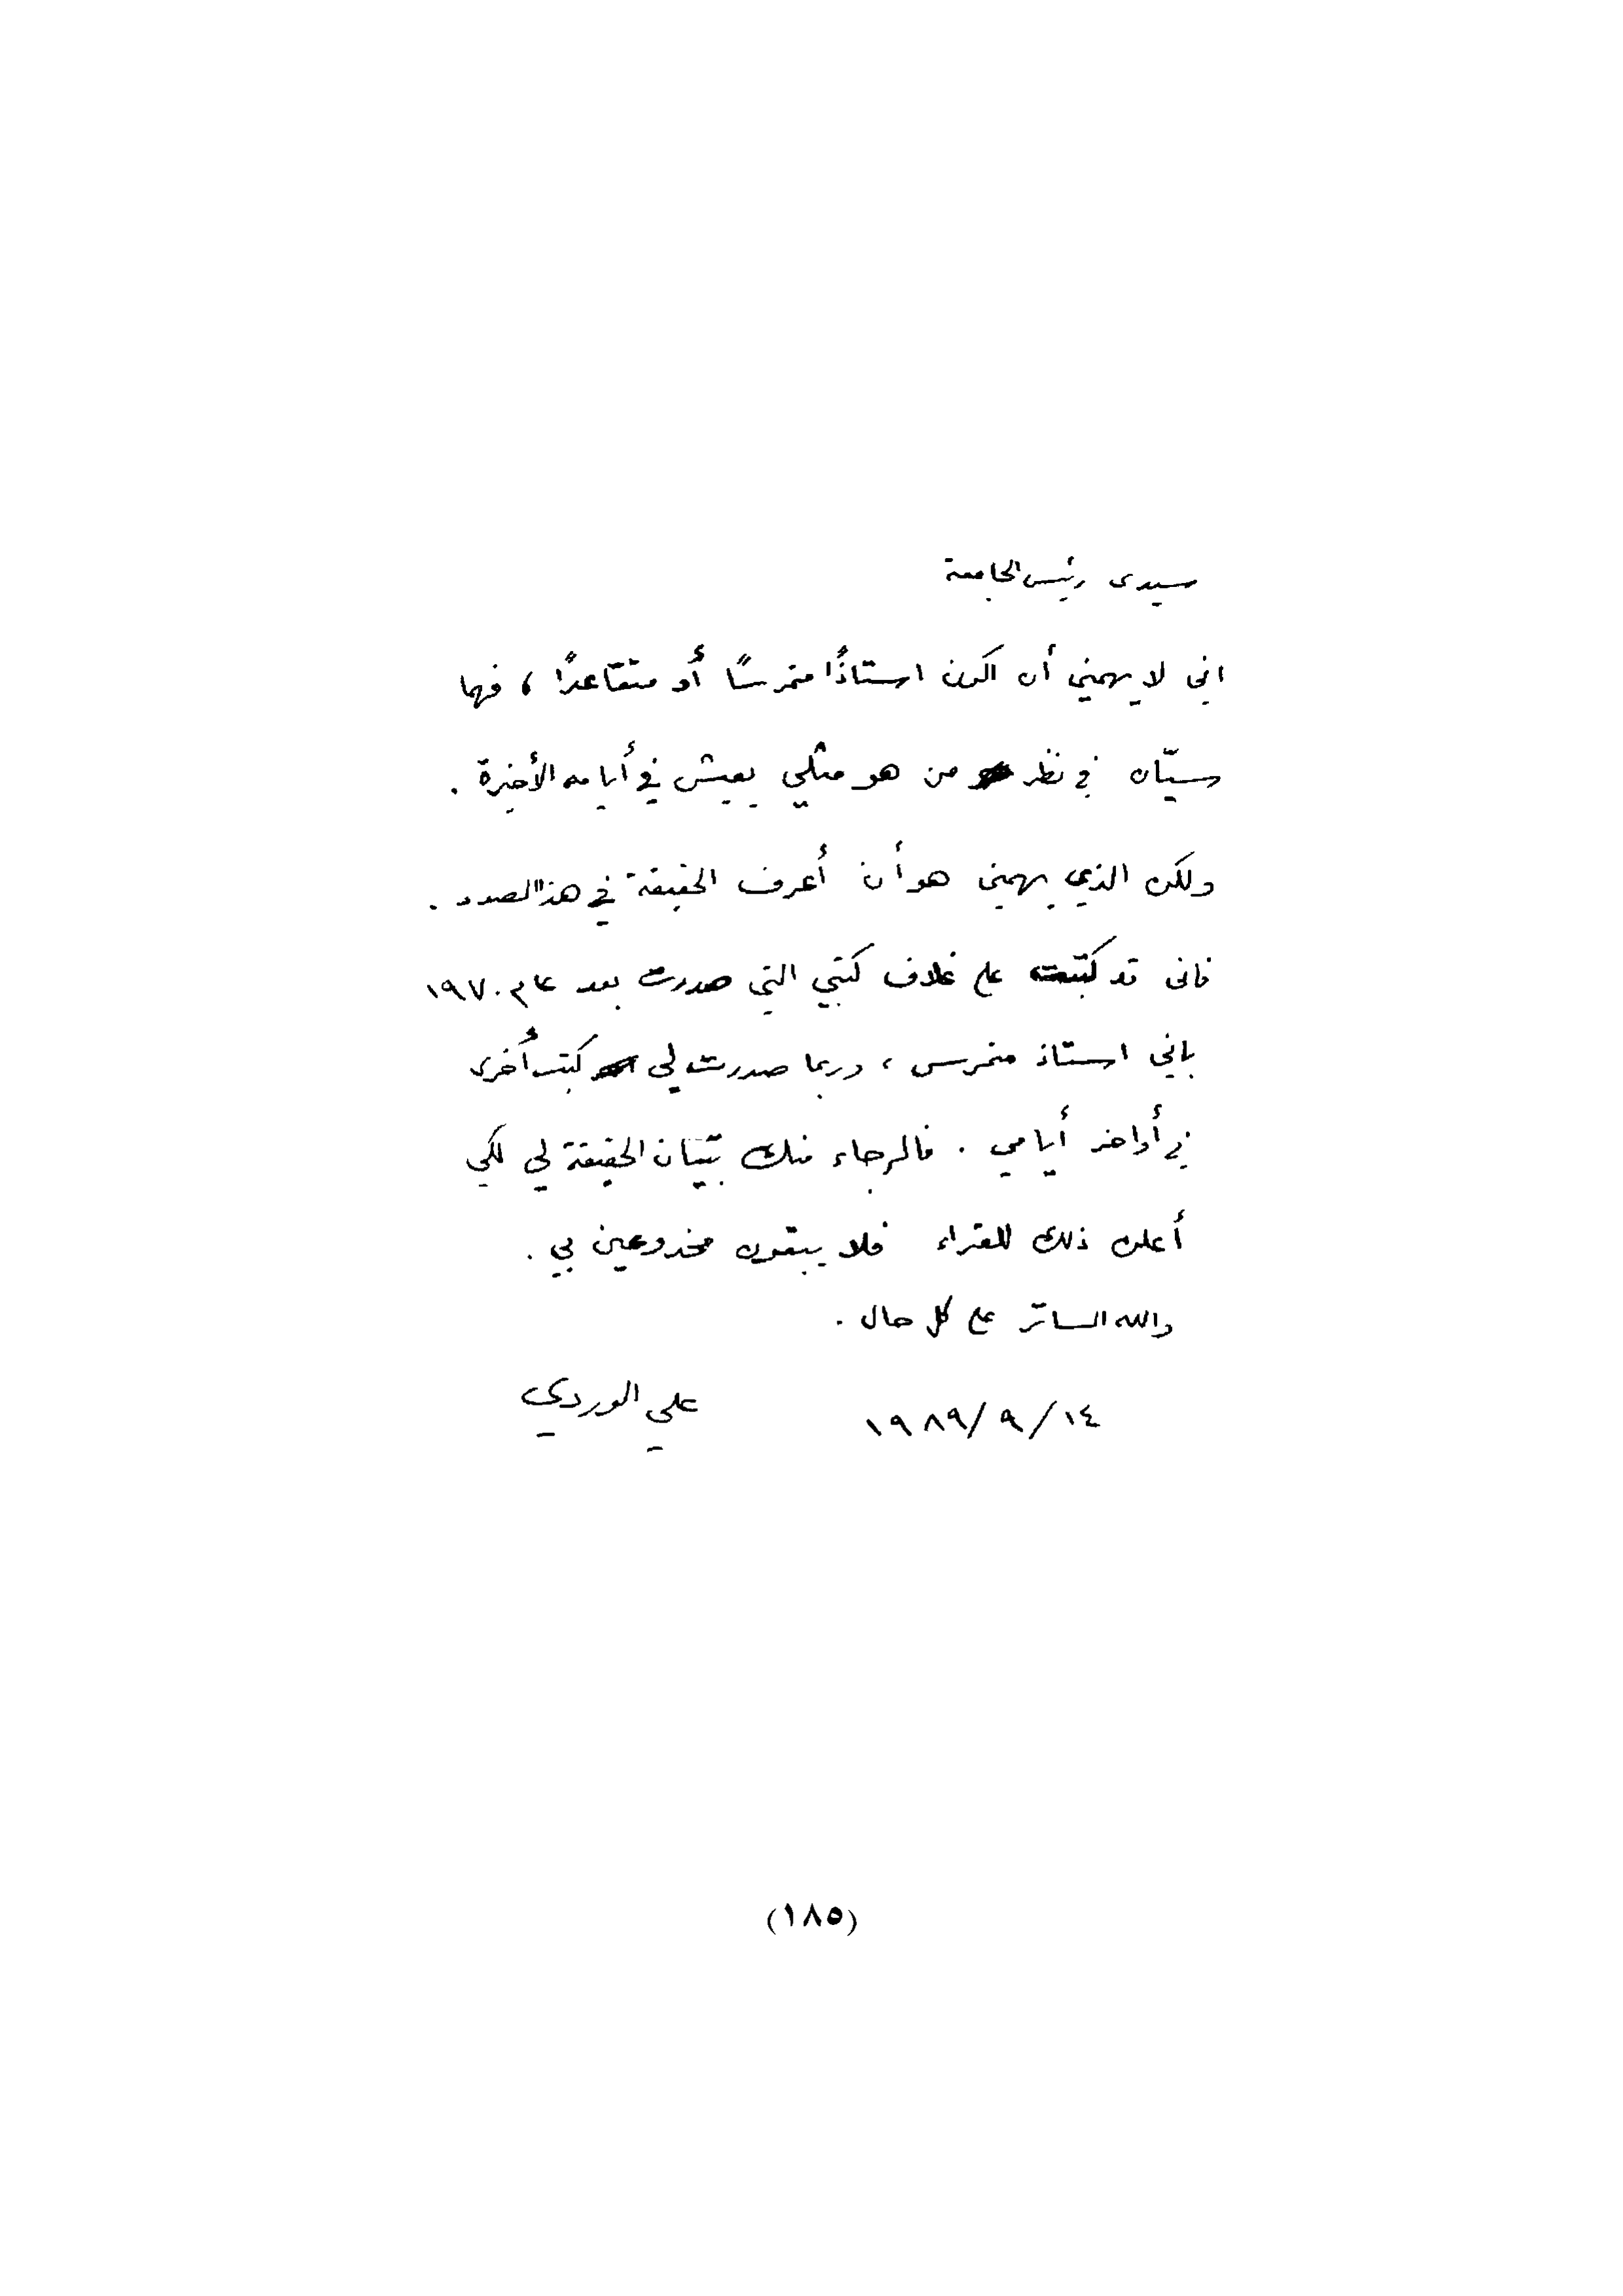 سيدي رئيس الجامعة
اني لا يهمني أن اكون استاذًا متمرسًا أو متقاعدًا ، فهما
سيّان في نظر من هو مثلي يعيش في أيامه الأخيرة .
ولكن الذي يهمني هو أن أعرف الحقيقة في هذا الصدد .
فاني قد كتبت على غلاف كتبي التي صدرت بعد عام ١٩٧٠
باني استاذ متمرس ، وربما صدرت لي كتب أخرى
في أواخر أيامي . فالرجاء منك تبيان الحقيقة لي لكي
أعلن ذلك للقراء فلا يبقون مخدوعين بي .
والله الساتر على كل حال .
١٤/ ٩ /١٩٨٩ علي الوردي
(١٨٥)